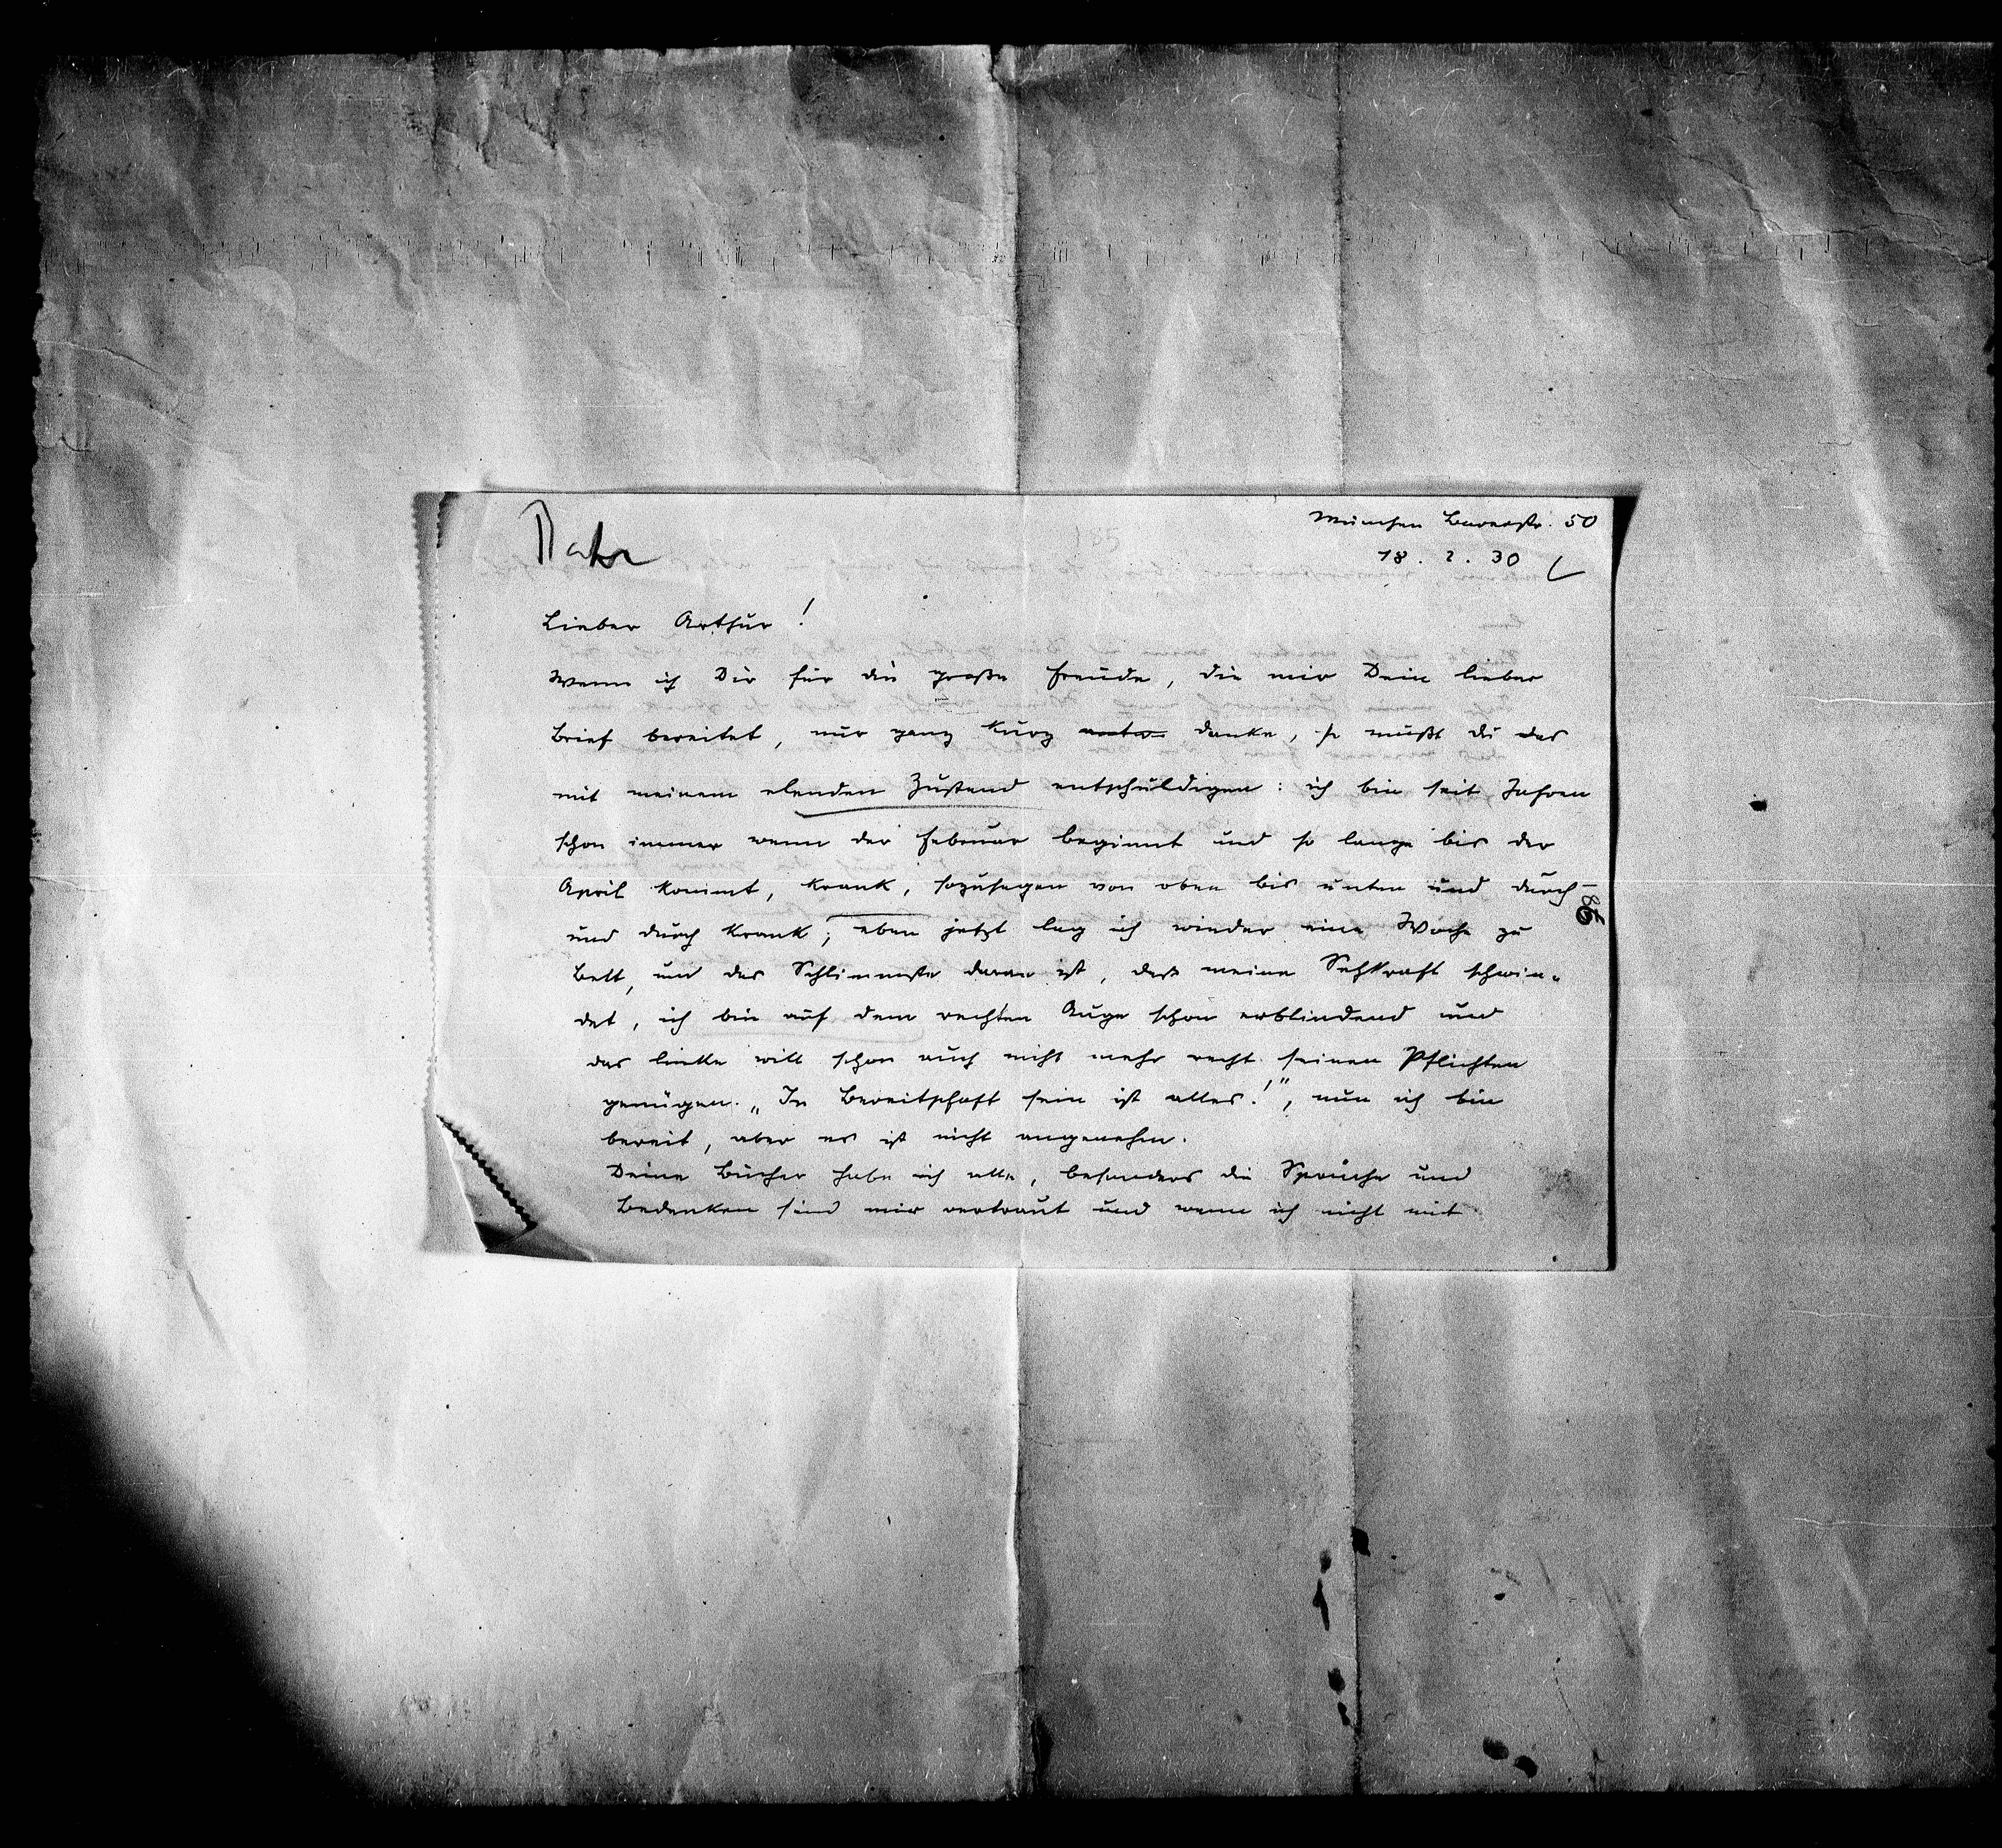 Bahr
München Barerstr. 50
18. 2. 30
Lieber Arthur!
Wenn ich Dir für die große Freude, die mir Dein lieber
Brief bereitet, nur ganz kurz danke, so mußt du das
mit meinem elenden Zustand entschuldigen: ich bin seit Jahren
schon immer wenn der Februar beginnt und so lange bis der
April kommt, krank, sozusagen von oben bis unten und durch
und durch krank; eben jetzt lag ich wieder eine Woche zu
Bett, und das Schlimmste daran ist, daß meine Sehkraft schwin-
det, ich bin auf dem rechten Auge schon erblindend und
das linke will schon auch nicht mehr recht seinen Pflichten
genügen. „In Bereitschaft sein ist alles!", nun ich bin
bereit, aber es ist nicht angenehm.
Deine Bücher habe ich alle, besonders die Sprüche und
Bedenken sind mir vertraut und wenn ich nicht mit